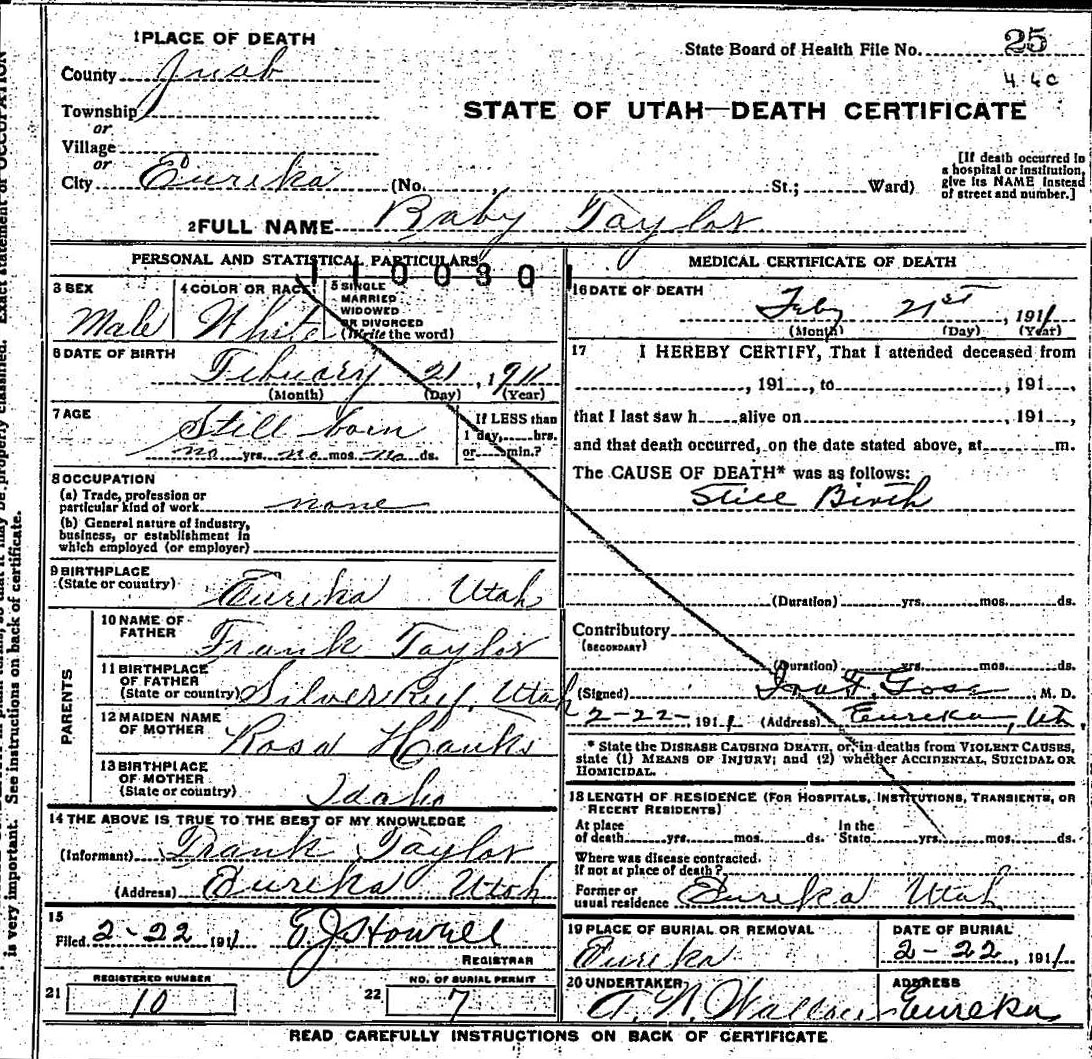 1 PLACE OF DEATH
State Board of Health File No. 25
County Juab
4 40
Township
STATE OF UTAH—DEATH CERTIFICATE
or
Village
or
City Eureka (No. St.; Ward)
[If death occurred in a hospital or institution, give its NAME instead of street and number.]
2 FULL NAME Baby Taylor
PERSONAL AND STATISTICAL PARTICULARS
1100301
3 SEX Male
4 COLOR OR RACE White
5 SINGLE MARRIED WIDOWED OR DIVORCED (Write the word)
6 DATE OF BIRTH
Febuary 21, 1911
(Month) (Day) (Year)
7 AGE
Still born
no yrs. no mos. no ds.
If LESS than 1 day, hrs. or min.?
8 OCCUPATION
(a) Trade, profession or particular kind of work none
(b) General nature of industry, business, or establishment in which employed (or employer)
9 BIRTHPLACE (State or country) Eureka Utah
PARENTS
10 NAME OF FATHER Frank Taylor
11 BIRTHPLACE OF FATHER (State or country) Silver Reef, Utah
12 MAIDEN NAME OF MOTHER Rosa Hanks
13 BIRTHPLACE OF MOTHER (State or country) Idaho
14 THE ABOVE IS TRUE TO THE BEST OF MY KNOWLEDGE
(Informant) Frank Taylor
(Address) Eureka Utah
15 Filed 2-22 1911 E J Howell
REGISTRAR
REGISTERED NUMBER
21 10
NO. OF BURIAL PERMIT
22 7
MEDICAL CERTIFICATE OF DEATH
16 DATE OF DEATH
Feby 21st, 1911
(Month) (Day) (Year)
17 I HEREBY CERTIFY, That I attended deceased from
, 191 , to , 191 ,
that I last saw h alive on , 191 ,
and that death occurred, on the date stated above, at m.
The CAUSE OF DEATH* was as follows:
Still Birth
(Duration) yrs. mos. ds.
Contributory
(SECONDARY)
(Duration) yrs. mos. ds.
(Signed) Ira F. Gose M. D.
2-22-1911 (Address) Eureka, Ut
* State the DISEASE CAUSING DEATH, or, in deaths from VIOLENT CAUSES,
state (1) MEANS OF INJURY; and (2) whether ACCIDENTAL, SUICIDAL OR
HOMICIDAL.
18 LENGTH OF RESIDENCE (FOR HOSPITALS, INSTITUTIONS, TRANSIENTS, OR
RECENT RESIDENTS)
At place of death yrs. mos. ds. In the State yrs. mos. ds.
Where was disease contracted. if not at place of death?
Former or usual residence Eureka Utah
19 PLACE OF BURIAL OR REMOVAL
Eureka
DATE OF BURIAL
2-22, 1911
20 UNDERTAKER
Wallace
ADDRESS
Eureka
READ CAREFULLY INSTRUCTIONS ON BACK OF CERTIFICATE
be properly classified. Exact statement of OCCUPATION
is very important. See instructions on back of certificate.